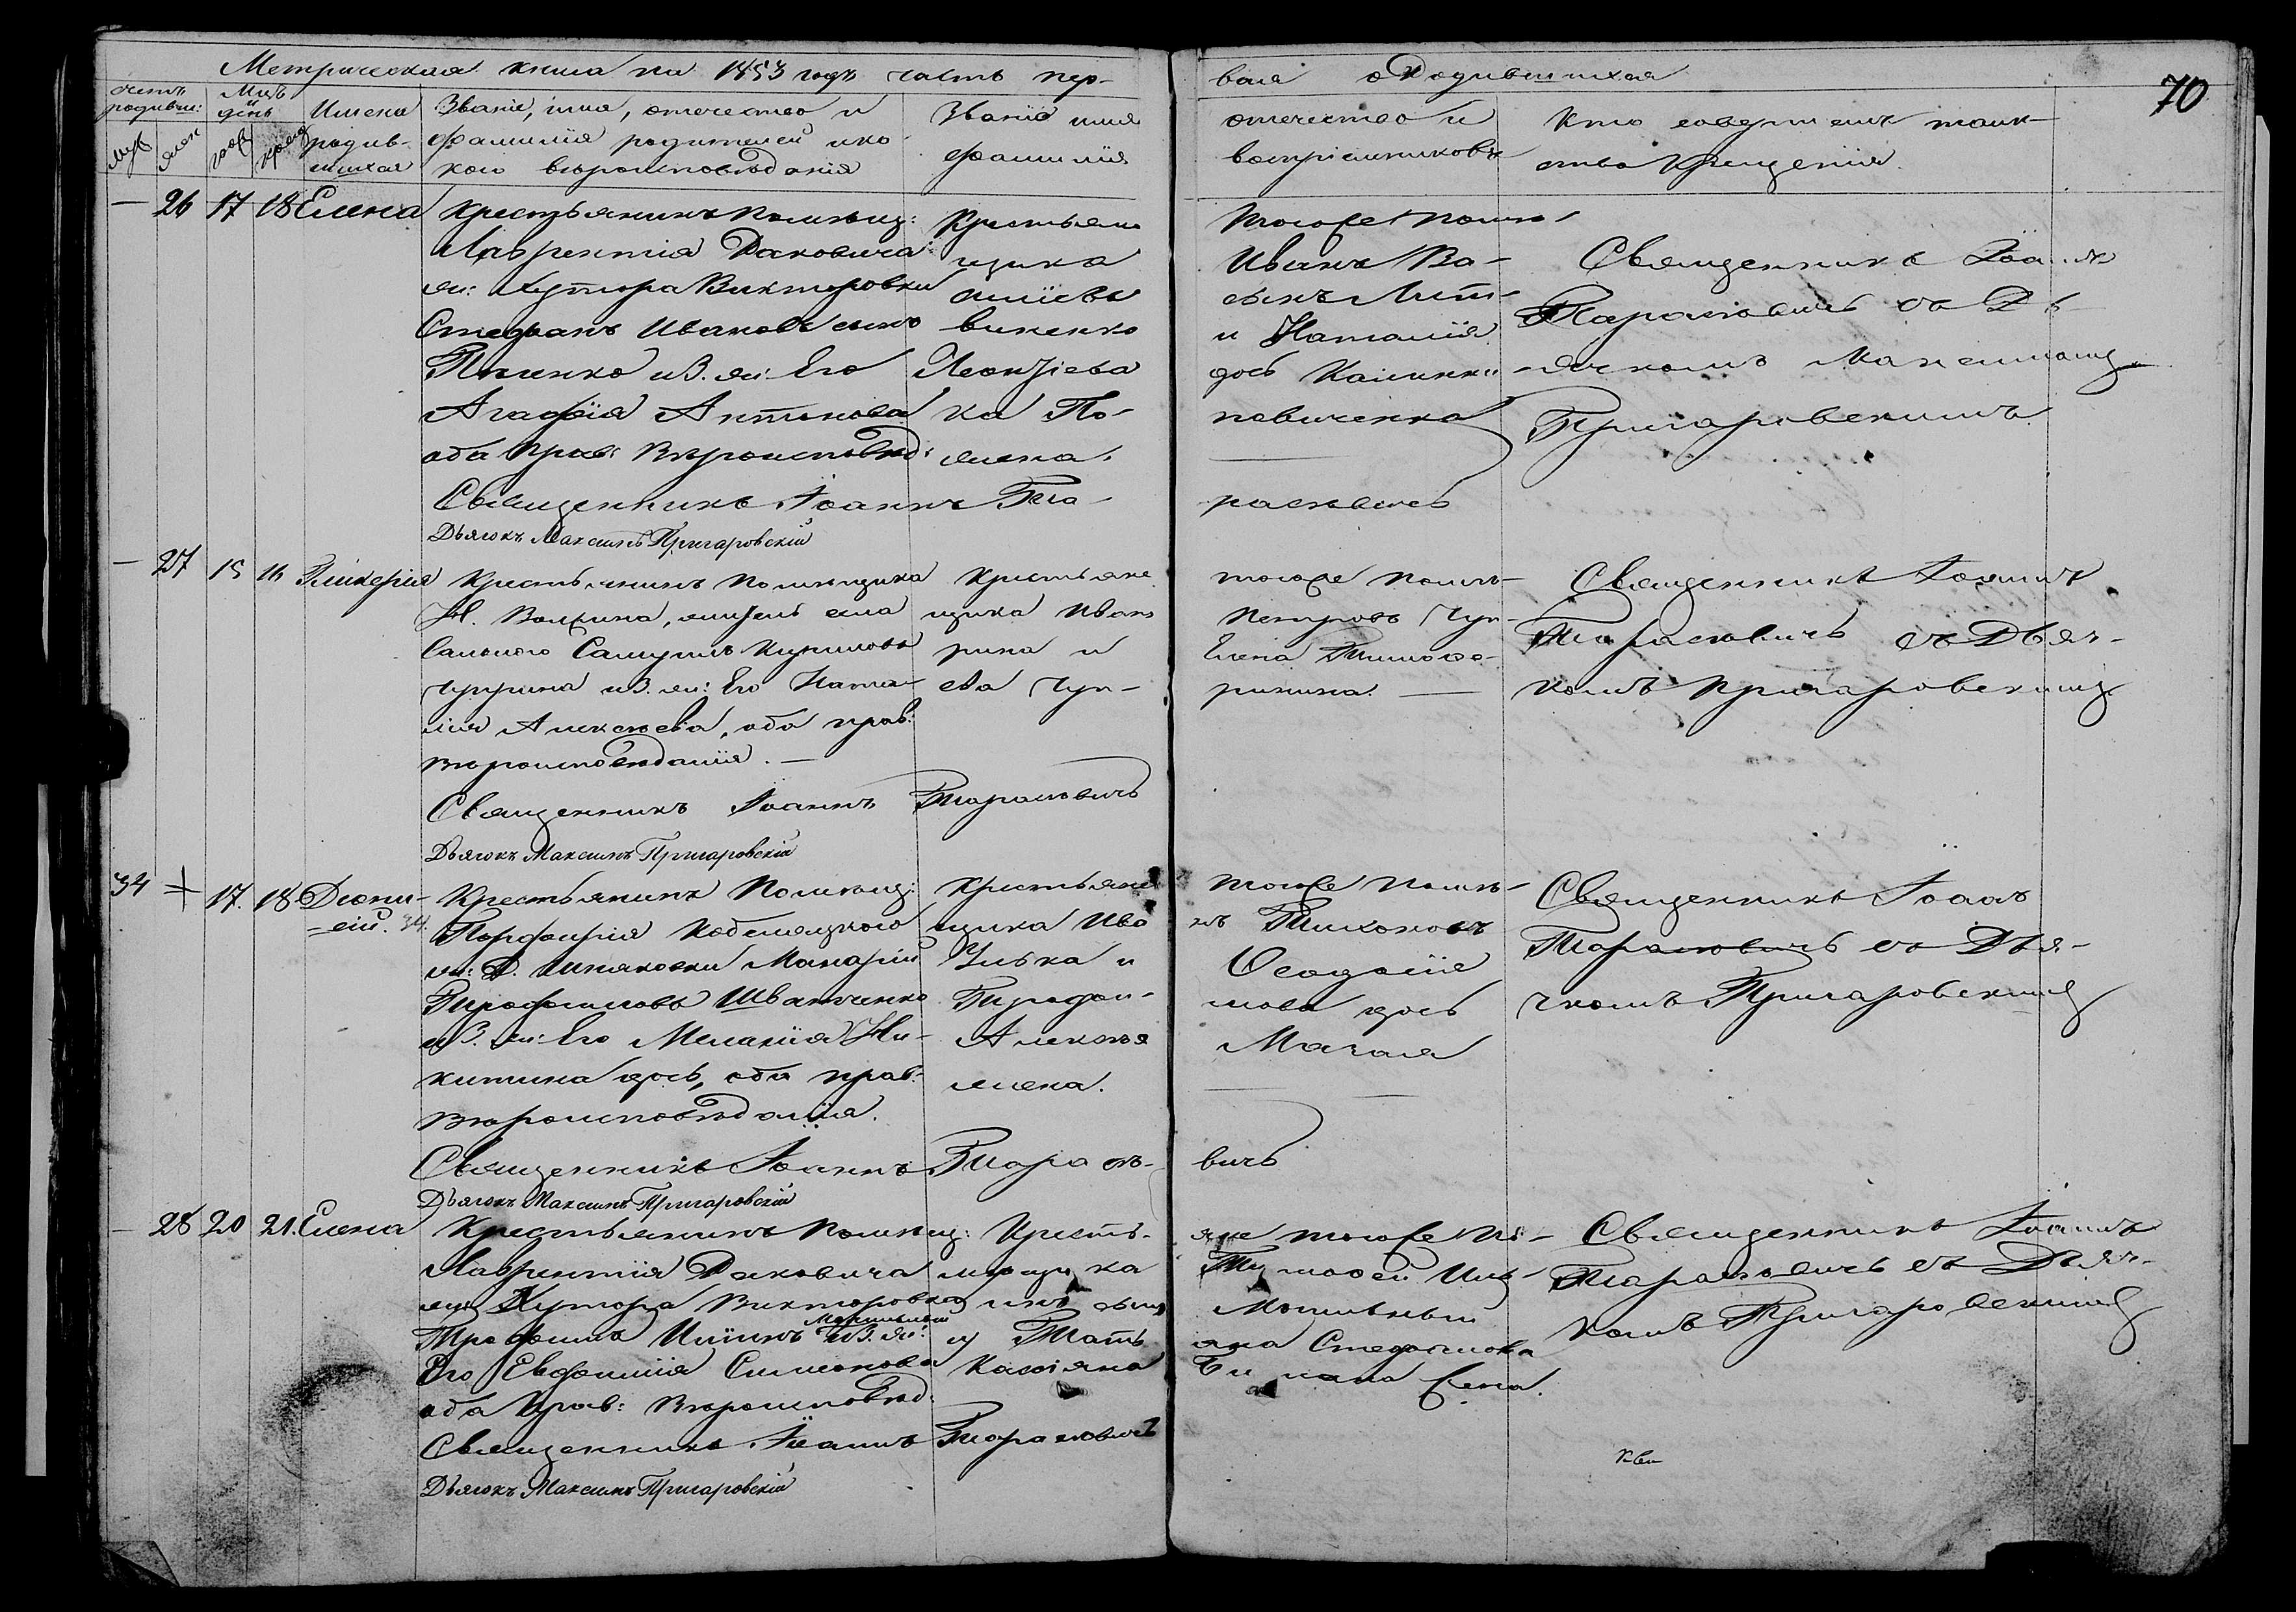 Метрическая книга на 1853 годъ часть пер-
вая о Родившихся
70
счетъ родивш:
Мцъ и день
Имена родив-шихся
Званіе, имя, отечество и
фамилія родителей и ко-
кого вѣроисповѣданія
Званіе имя
фамилія
отечество и
воспріемниковъ
Кто совершалъ таин-
ство Крещенія.
— 26 17 18 Елена
Крестьянинъ помѣщ:
Лаврентія Даковича
жи: Хутора Викторовки
Стефанъ Ивановъ сынъ
и З. жи: Его
Агафія Антонова
оба прав: Вѣроисповѣд:
Священникъ Іоаннъ Та-
Дьячокъ Максимъ Пригаровскій
Крестьяне
щика
силіевъ
виненко
Леонтіева
ка По-
лена.
тогоже помѣ-
Иванъ Ва-
сынъ Лит-
и Наталія
дочь Калинни-
повиченка
расевичъ
Священникъ Іоаннъ
Тарасовичъ съ Дь-
ячкомъ Максимомъ
Пригаровскимъ
— 27 15 16 Гликерія
Крестьянинъ помѣщика
Н. Волкина, житель села
Сального Самуилъ Кириловъ
Чуприна и З. жи: Его Ната-
лія Алексѣева, оба прав:
вѣроисповѣданія. —
Священникъ Іоаннъ Тарасовичъ
Дьячокъ Максимъ Пригаровскій
Крестьяне
щика Иванъ
рина и
ева Чуп-
тогоже помѣ-
Петровъ Чуп-
Елена Тимофе-
ринина. —
Священникъ Іоаннъ
Тарасовичъ съ Дьяч-
комъ Пригаровскимъ
34 + 17. 18 Діони-
сій. 34.
Крестьянинъ Помѣщ:
Порфирія Кобеляцкого
жи: Д. Шняковки Макарій
Трофимовъ Шватченко
и З. жи: Его Меланія Ни-
китина дочь, оба прав.
вѣроисповѣданія.
Священникъ Іоаннъ Тарасе-
вичъ
Дьячокъ Максимъ Пригаровскій
Крестьяне
щика Ива
Улька и
Трофи-
Алексѣя
лиена.
тогоже помѣ-
нъ Тихоновъ
мова дочь
Священникъ Іоаннъ
Тарасовичъ съ Дья-
чкомъ Пригаровскимъ
— 28 20 21. Елена
Крестьянинъ Помѣщ:
Лаврентія Даковича
жи: Хутора Викторовка
Трофимъ Иліинъ Могильный и З. жи:
Его Евфимія Симонова
оба Прав: Вѣроисповѣд.
Священникъ Іоаннъ Тарасовичъ
Дьячокъ Максимъ Пригаровскій
Кресть-
мѣщика
инъ сынъ
и Тать
Касіяна
яне тогоже по-
Тимофей Иль-
Могильный
яна Стефанова
Священникъ Іоаннъ
Тарасовичъ съ Дьяч-
комъ Пригаровскимъ